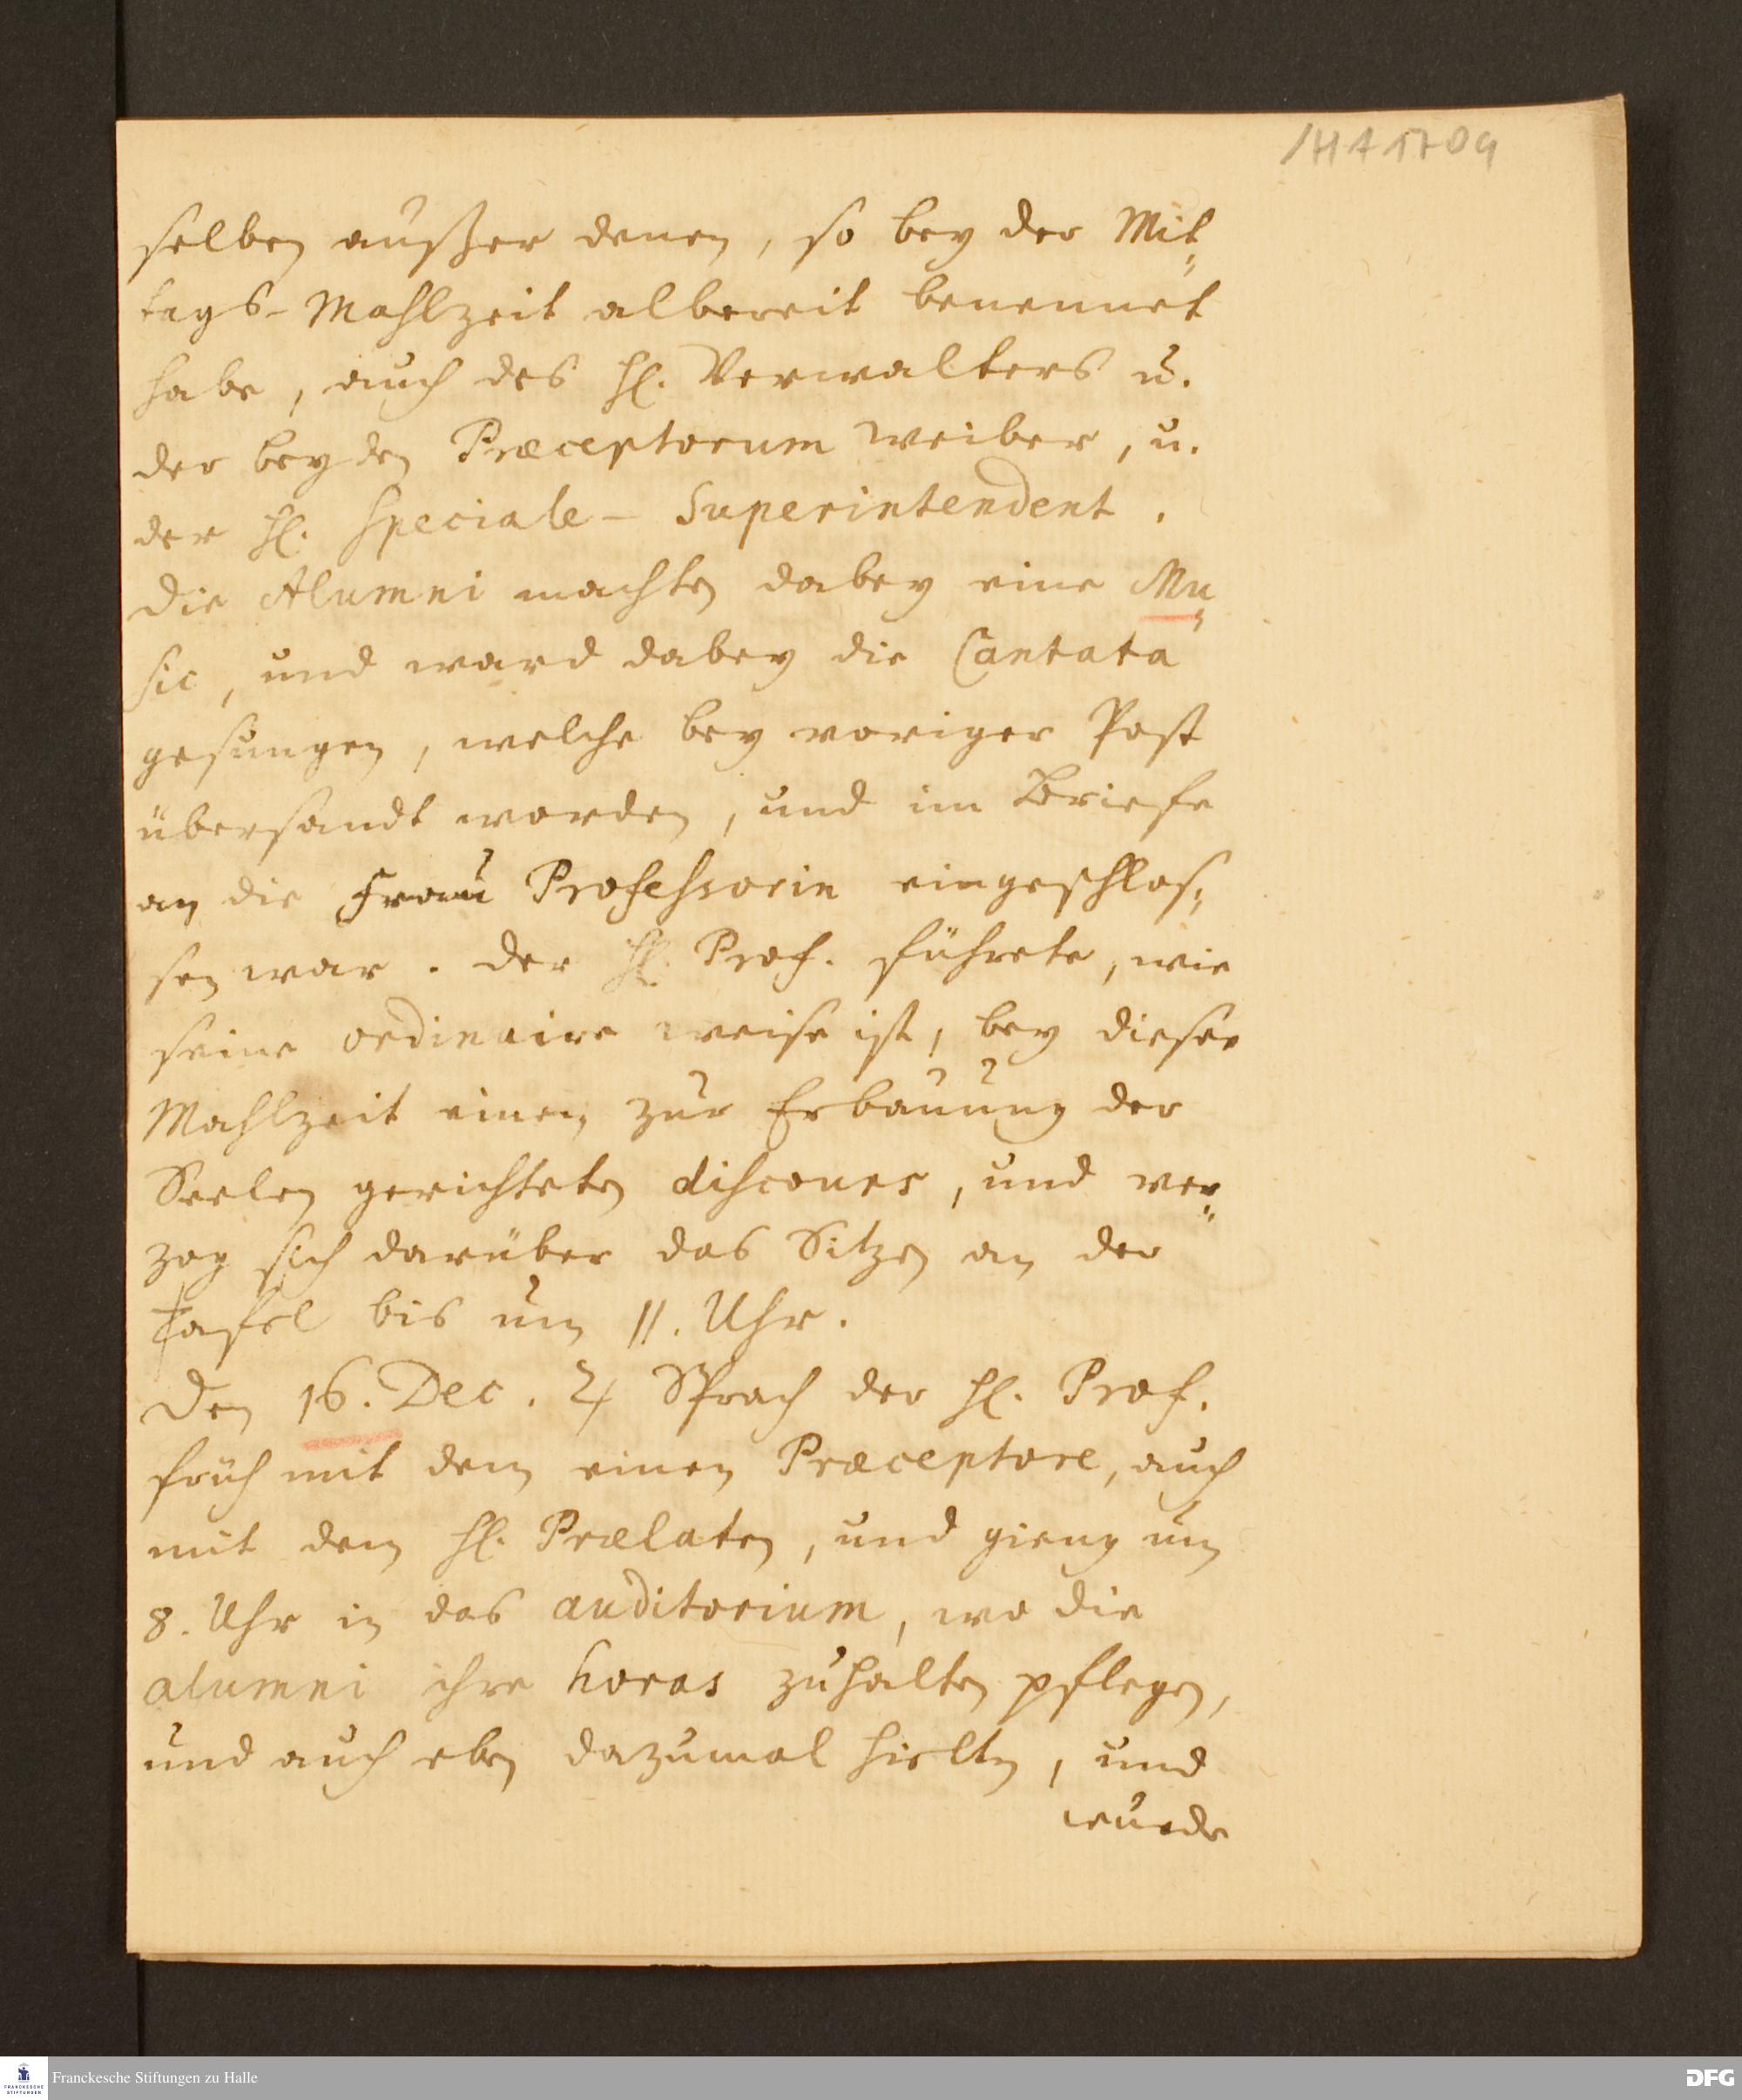 /H A 170q
selben außer denen, so bey der Mit⸗
tags-Mahlzeit albereit benennet
habe, auch des H. Verwalters u.
der beyden Præceptorum weiber, u.
der H. Speciale-Superintendent.
Die Alumni machten dabey eine Mu⸗
sic, und ward dabey die Cantata
gesungen, welche bey voriger Post
übersandt worden, und im Briefe
an die Frau Professorin eingeschlos⸗
sen war. Der H. Prof. führete, wie
seine ordinaire weise ist, bey dieser
Mahlzeit einen zur Erbauung der
Seelen gerichteten discours, und ver⸗
zog sich darüber das Sitzen an der
Tafel bis um 11. Uhr.
Den 16. Dec. ♃ Sprach der H. Prof.
früh mit dem einen Præceptore, auch
mit dem H. Prælaten, und gieng um
8. Uhr in das auditorium, wo die
alumni ihre horas zuhalten pflegen,
und auch eben dazumal hielten, und
wurde
Franckesche Stiftungen zu Halle
FRANCKESCHE
STIFTUNGEN
DFG